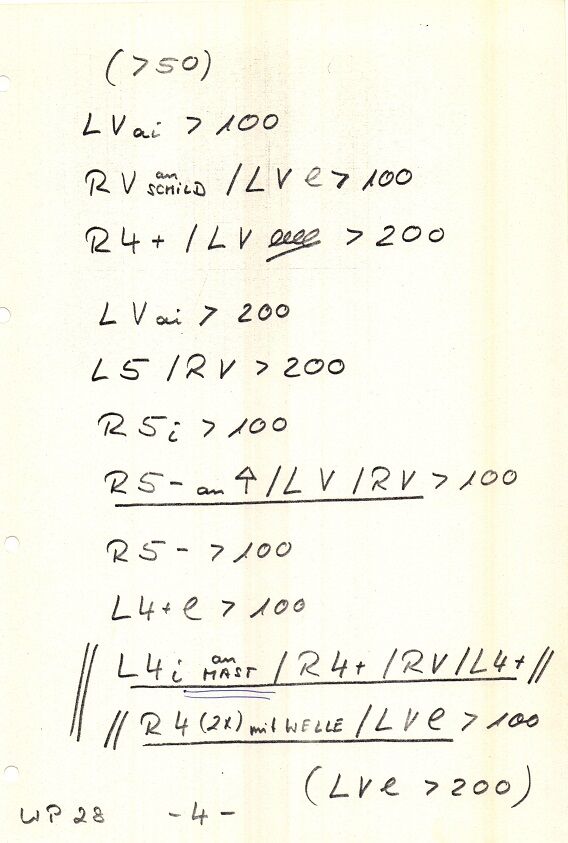 (>50)
LVai >100
RV an SCHILD /LVe>100
R4+ /LV >200
LVai > 200
L5 /RV >200
R5i >100
R5- an ↑ /LV /RV >100
R5- >100
L4+e >100
// L4i an MAST /R4+ /RV/L4+ //
// R4 (2x) mit WELLE /LVe >100
(LVe >200)
WP 28 -4-